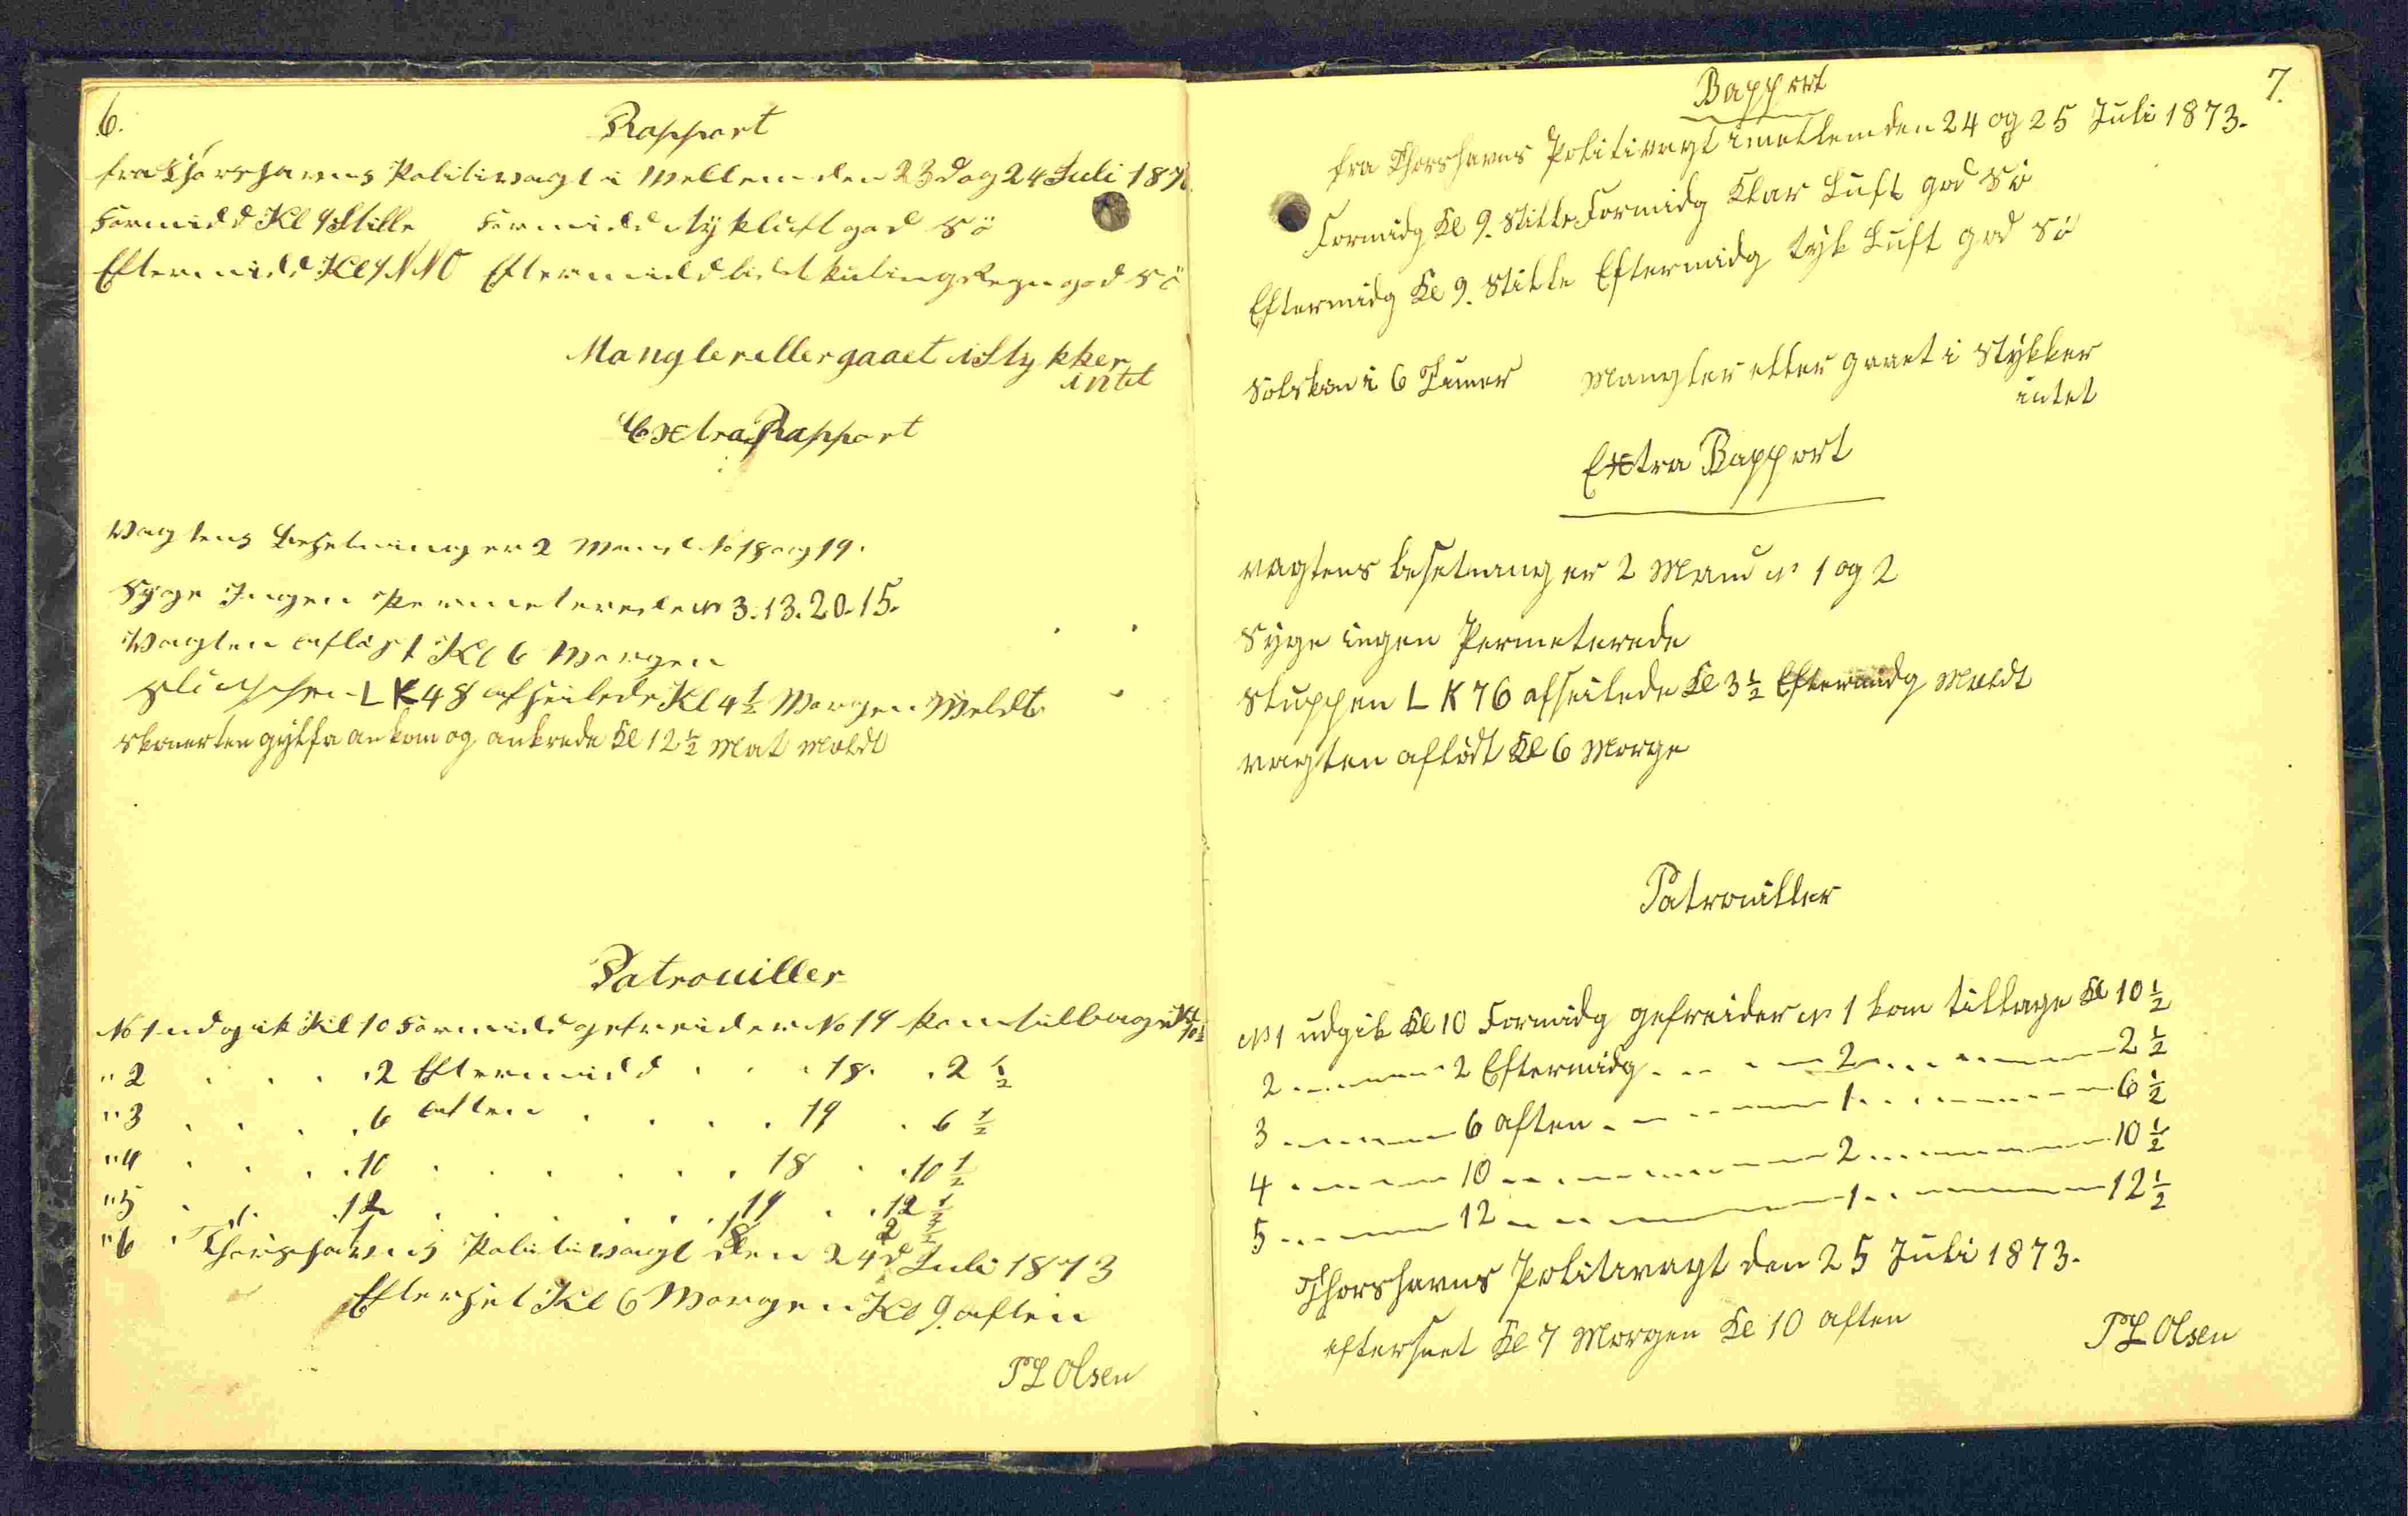 6.
Rapport
fra Thorshavns Politivagt i Mellem den 23d og 24 Juli 187
Formidd Kl 9 Stille Formidd tyk luft god Sö
Eftermidd Kl 9 NNO Eftermidd lidet kuling Regn god Sö
Mangler eller gaaet i Stykker
intet
Extra Rapport
Vagtens Besetning er 2 Mand No 18 og 19.
Syge Ingen Permeterede No 3. 13. 20. 15.
Vagten aflöst Kl 6 Morgen
Sluppen LK 48 afseilede Kl 4 1/2 Morgen Meldt
Skonerten Gylfa ankom og ankrede Kl 12 1/2 Nat Meldt
Patrouiller
No 1 udgik Kl 10 Formidd gefreider No 19 kom tilbage Kl 10 1/2
" 2 . . . . 2 Eftermidd . . . 18 . . 2 1/2
" 3 . . . . 6 aften . . . . 19 . 6 1/2
" 4 . . . . 10 . . . . . . 18 . . 10 1/2
" 5 . . . 12 . . . . . . 19 . . 12 1/2
" 6 . 18 2 1/2
Thorshavns Politivagt den 24d Juli 1873
Efterset Kl 6 Morgen Kl 9 aften
PL Olsen
7.
Rapport
fra Thorshavns Politivagt imellem den 24 og 25 Juli 1873.
Formidg Kl 9. Stille Formidg Klar Luft god Sö
Eftermidg Kl 9. Stille Eftermidg tyk Luft god Sö
Solskin i 6 Timer Mangler eller gaaet i Stykker
intet
Extra Rapport
vagtens besetnang er 2 Mand No 1 og 2
Syge ingen Permeterede
Sluppen LK 76 afseilede Kl 3 1/2 Eftermidg Meldt
vagten aflödt Kl 6 Morge
Patrouiller
No 1 udgik Kl 10 Formidg gefreider No 1 kom tilbage Kl 10 1/2
2 ------ 2 Eftermidg ------ 2 ------ 2 1/2
3 ------ 6 aften ------ 1 ------ 6 1/2
4 ------ 10 ------ 2 ------ 10 1/2
5 ------ 12 ------ 1 ------ 12 1/2
Thorshavns Politivagt den 25 Juli 1873.
efterseet Kl 7 Morgen Kl 10 aften
PL Olsen